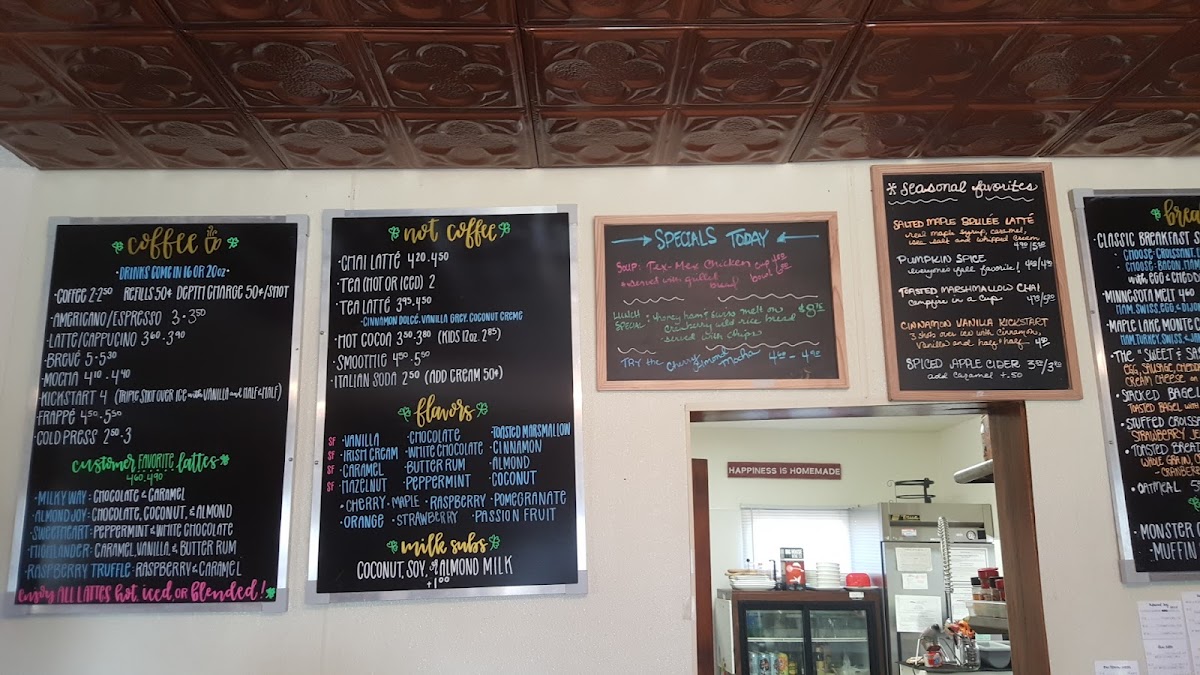 coffee
DRINKS COME IN 16 OR 20oz
COFFEE 2·2⁵⁰ REFILLS 50¢ DEPTH CHARGE 50¢/SHOT
·AMERICANO/ESPRESSO 3·3⁵⁰
·LATTE/CAPPUCINO 3⁶⁰·3⁹⁰
·BREVÉ 5·5³⁰
·MOCHA 4¹⁰·4⁴⁰
·KICKSTART 4 (TRIPLE SHOT OVER ICE with VANILLA and HALF & HALF)
·FRAPPÉ 4⁵⁰·5⁵⁰
·COLD PRESS 2⁵⁰·3
customer FAVORITE lattes
4⁶⁰·4⁹⁰
·MILKY WAY: CHOCOLATE & CARAMEL
·ALMOND JOY: CHOCOLATE, COCONUT, & ALMOND
·SWEETHEART: PEPPERMINT & WHITE CHOCOLATE
·HIGHLANDER: CARAMEL, VANILLA, & BUTTER RUM
·RASPBERRY TRUFFLE: RASPBERRY & CARAMEL
enjoy ALL LATTES hot, iced, OR blended!
not coffee
·CHAI LATTÉ 4²⁰·4⁵⁰
·TEA (HOT OR ICED) 2
·TEA LATTÉ 3⁹⁵·4⁵⁰
·CINNAMON DOLCE, VANILLA GREY, COCONUT CREME
·HOT COCOA 3⁵⁰·3⁸⁰ (KIDS 12oz. 2⁸⁵)
·SMOOTHIE 4⁵⁰·5⁵⁰
·ITALIAN SODA 2⁵⁰ (ADD CREAM 50¢)
flavors
SF ·VANILLA ·CHOCOLATE ·TOASTED MARSMALLOW
SF ·IRISH CREAM ·WHITE CHOCOLATE ·CINNAMON
SF ·CARAMEL ·BUTTER RUM ·ALMOND
SF ·HAZELNUT ·PEPPERMINT ·COCONUT
·CHERRY ·MAPLE ·RASPBERRY ·POMEGRANATE
·ORANGE ·STRAWBERRY ·PASSION FRUIT
milk subs
COCONUT, SOY, or ALMOND MILK
+1⁰⁰
SPECIALS TODAY
SOUP: Tex-Mex Chicken cup
served with grilled bread bowl
LUNCH SPECIAL: honey ham & swiss melt on
cranberry wild rice bread
served with chips
TRY the Cherry Almond Mocha
* seasonal favorites
SALTED MAPLE BRULÉE LATTÉ
real maple syrup, caramel,
sea salt and whipped cream
PUMPKIN SPICE
everyones fall favorite!
TOASTED MARSHMALLOW CHAI
campfire in a cup
CINNAMON VANILLA KICKSTART
3 shots over ice with cinnamon,
vanilla and half & half
SPICED APPLE CIDER
add caramel +.50
HAPPINESS IS HOMEMADE
brea
·CLASSIC BREAKFAST S
·CHOOSE: CROISSANT,
·CHOOSE: BACON, HAM
with EGG & CHEDD
·MINNESOTA MELT 4⁶⁰
HAM, SWISS, EGG, & DIJON
·MAPLE LAKE MONTE C
HAM, TURKEY, SWISS, & JAM
·THE "SWEET & SA
EGG, SAUSAGE, CHEDDA
CREAM CHEESE
·STACKED BAGEL
TOASTED BAGEL WITH
·STUFFED CROISSA
STRAWBERRY JE
·TOASTED BREAD
WHOLE GRAIN, C
·CRANBER
·OATMEAL
·MONSTER C
·MUFFIN